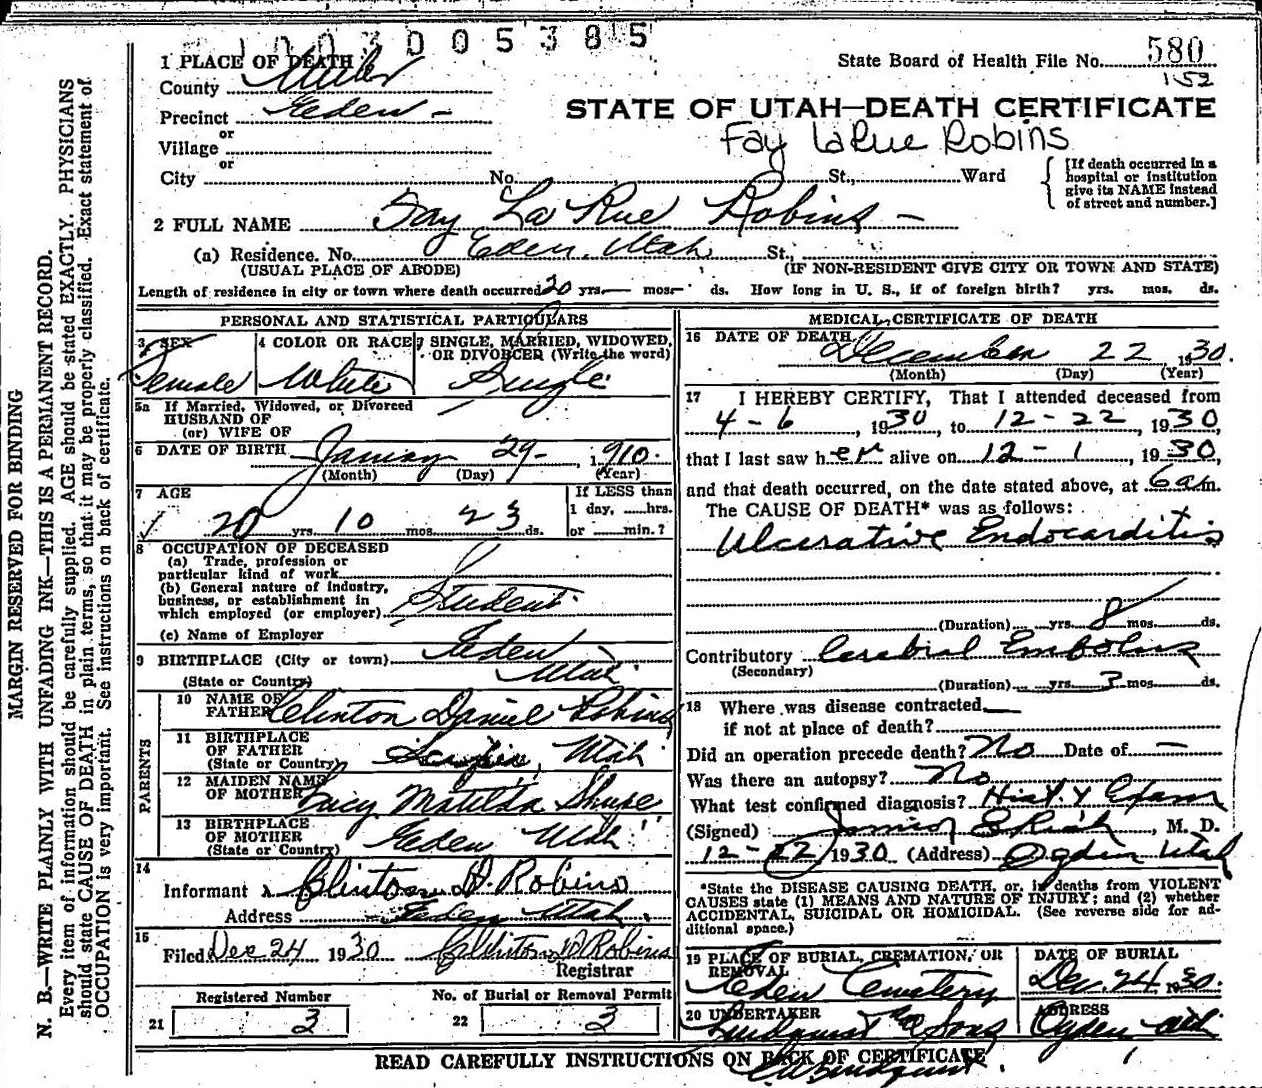 1003005385
1 PLACE OF DEATH
State Board of Health File No. 580
152
County Weber
Precinct Eden -
STATE OF UTAH—DEATH CERTIFICATE
or
Fay LaRue Robins
Village
or
City No. St., Ward
[If death occurred in a hospital or institution give its NAME instead of street and number.]
2 FULL NAME Fay La Rue Robins -
(a) Residence. No. Eden, Utah St.,
(USUAL PLACE OF ABODE) (IF NON-RESIDENT GIVE CITY OR TOWN AND STATE)
Length of residence in city or town where death occurred 20 yrs. — mos. - ds. How long in U. S., if of foreign birth? yrs. mos. ds.
PERSONAL AND STATISTICAL PARTICULARS
3 SEX Female
4 COLOR OR RACE White
SINGLE, MARRIED, WIDOWED, OR DIVORCED (Write the word) Single
5a If Married, Widowed, or Divorced
HUSBAND OF
(or) WIFE OF
6 DATE OF BIRTH January 29-, 1910.
(Month) (Day) (Year)
7 AGE
20 yrs. 10 mos. 23 ds.
If LESS than
1 day, ......hrs.
or ......min.?
8 OCCUPATION OF DECEASED
(a) Trade, profession or
particular kind of work
(b) General nature of industry,
business, or establishment in
which employed (or employer) Student
(c) Name of Employer
9 BIRTHPLACE (City or town) Eden
(State or Country) Utah
PARENTS
10 NAME OF FATHER Clinton Daniel Robins
11 BIRTHPLACE OF FATHER (State or Country) Utah
12 MAIDEN NAME OF MOTHER Lucy Matilda
13 BIRTHPLACE OF MOTHER (State or Country) Eden Utah
14
Informant Clinton D. Robins
Address Eden Utah
15
Filed Dec 24 1930 Clinton D Robins
Registrar
Registered Number
21 3
No. of Burial or Removal Permit
22 3
MEDICAL CERTIFICATE OF DEATH
16 DATE OF DEATH December 22 1930.
(Month) (Day) (Year)
17 I HEREBY CERTIFY, That I attended deceased from
4-6, 1930, to 12-22, 1930,
that I last saw her alive on 12-1, 1930,
and that death occurred, on the date stated above, at 6am.
The CAUSE OF DEATH* was as follows:
Ulcerative Endocarditis
(Duration) yrs. 8 mos. ds.
Contributory Cerebral Embolus
(Secondary)
(Duration) yrs. 3 mos. ds.
18 Where was disease contracted
if not at place of death?
Did an operation precede death? No Date of —
Was there an autopsy? No
What test confirmed diagnosis? Hist. & Exam
(Signed) , M. D.
12-22 1930 (Address) Ogden Utah
*State the DISEASE CAUSING DEATH, or, in deaths from VIOLENT
CAUSES state (1) MEANS AND NATURE OF INJURY; and (2) whether
ACCIDENTAL, SUICIDAL OR HOMICIDAL. (See reverse side for ad-
ditional space.)
19 PLACE OF BURIAL, CREMATION, OR REMOVAL
Eden Cemetery
DATE OF BURIAL
Dec. 24 1930.
20 UNDERTAKER
Lindquist & Sons
ADDRESS
Ogden Utah
READ CAREFULLY INSTRUCTIONS ON BACK OF CERTIFICATE
MARGIN RESERVED FOR BINDING
N. B.—WRITE PLAINLY WITH UNFADING INK—THIS IS A PERMANENT RECORD.
Every item of information should be carefully supplied. AGE should be stated EXACTLY. PHYSICIANS
should state CAUSE OF DEATH in plain terms, so that it may be properly classified. Exact statement of
OCCUPATION is very important. See instructions on back of certificate.